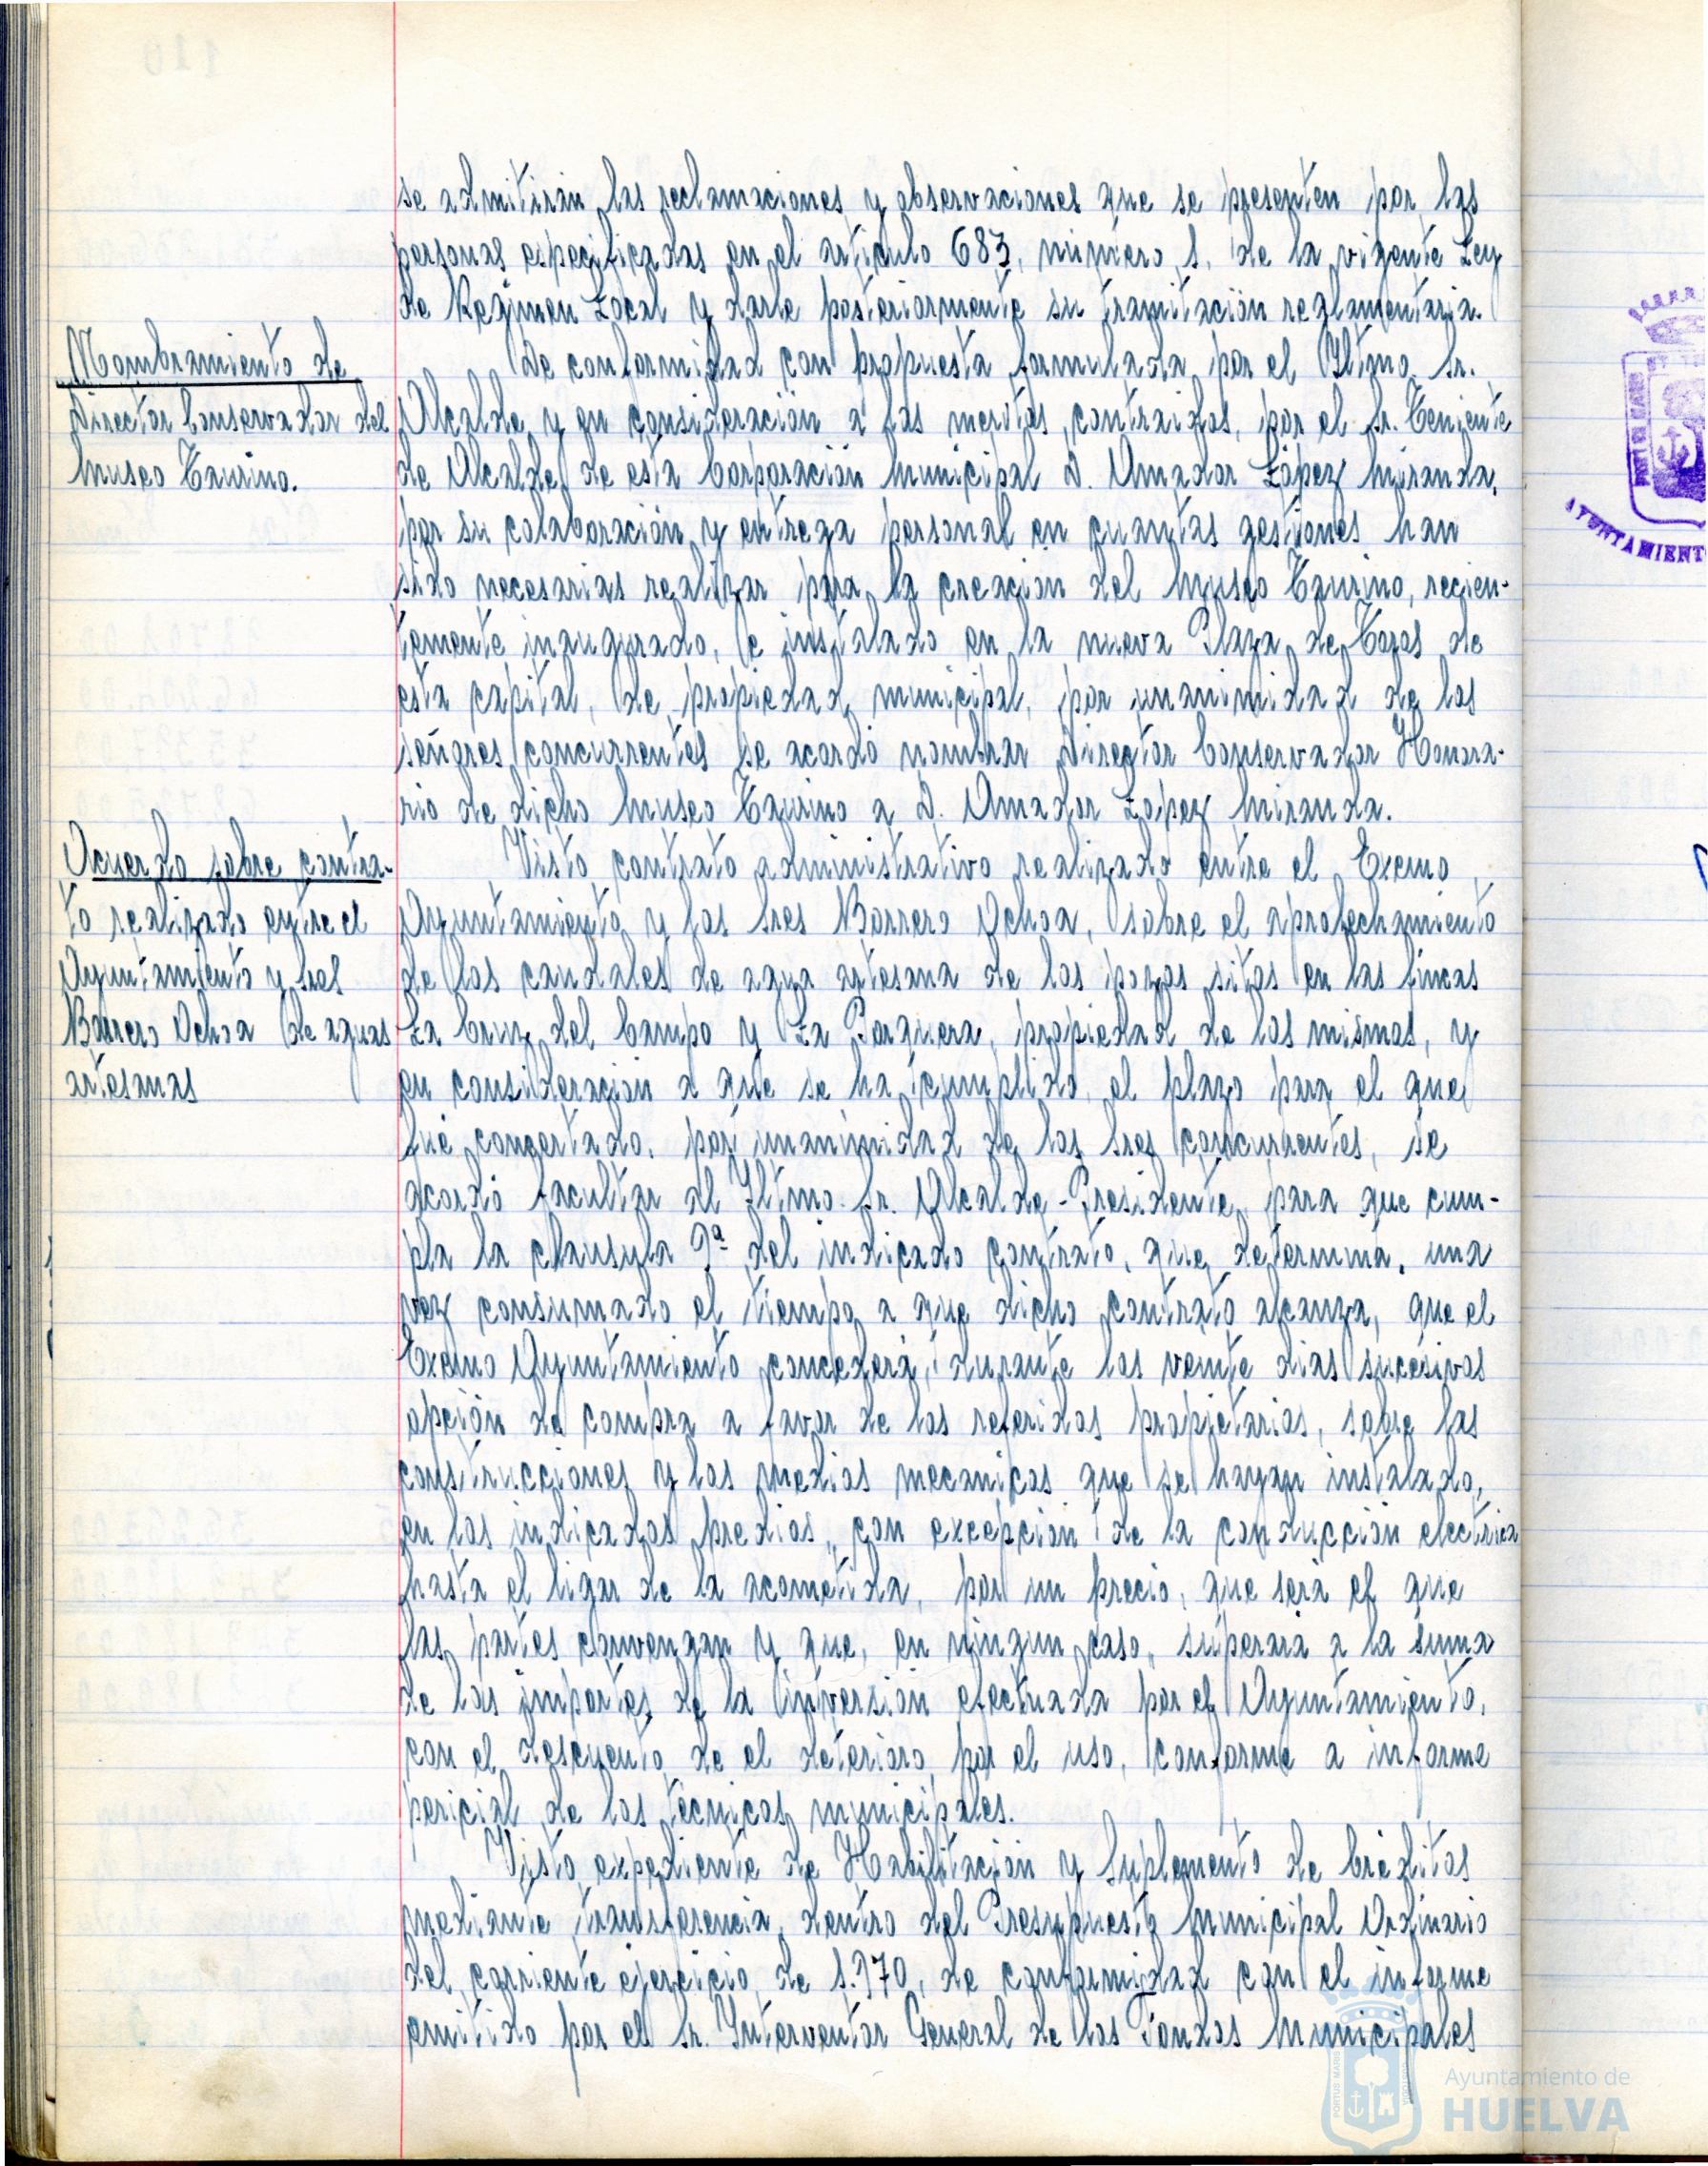 se admitirán las reclamaciones y observaciones que se presenten por las
personas especificadas en el articulo 683, número 1, de la vigente Ley
de Regimen Local y darle posteriormente su tramitación reglamentaria.
Nombramiento de
Director Conservador del
Museo Taurino.
De conformidad con propuesta formulada por el Iltmo. Sr.
Alcalde y en consideración a los meritos contraidos, por el Sr. Teniente
de Alcalde de esta Corporación Municipal D. Amador López Miranda,
por su colaboración y entrega personal en cuantas gestiones han
sido necesarias realizar para la creación del Museo Taurino, recien-
temente inaugurado, e instalado en la nueva Plaza de Toros de
esta capital, de propiedad municipal, por unanimidad de los
señores concurrentes se acordó nombrar Director Conservador Honora-
rio de dicho Museo Taurino a D. Amador Lopez Miranda.
Acuerdo sobre contra-
to realizado entre el
Ayuntamiento y Sres
Barrero Ochoa de aguas
artesanas
Visto contrato administrativo realizado entre el Excmo
Ayuntamiento y los Sres Barrero Ochoa, sobre el aprovechamiento
de los caudales de agua artesana de los pozos sitos en las fincas
La Cruz del Campo y La Parquera, propiedad de los mismos, y
en consideración a que se ha cumplido el plazo para el que
fué concertado, por unanimidad de los Sres concurrentes, se
acordó facultar al Iltmo. Sr. Alcalde-Presidente, para que cum-
pla la clausula 9ª del indicado contrato, que determina, una
vez consumado el tiempo a que dicho contrato alcanza, que el
Excmo Ayuntamiento concederá, durante los veinte dias sucesivos
opción de compra a favor de los referidos propietarios, sobre las
construcciones y los medios mecanicos que se hayan instalado,
en los indicados predios, con excepción de la conducción electrica
hasta el ligar de la acometida, por un precio, que será el que
las partes convengan y que, en ningun caso, superará a la suma
de los importes de la inversión efectuada por el Ayuntamiento,
con el descuento de el deterioro por el uso, conforme a informe
pericial de los técnicos municipales.
Visto expediente de Habilitación y Suplemento de Créditos
mediante transferencia, dentro del Presupuesto Municipal Ordinario
del corriente ejercicio de 1.970, de conformidad con el informe
emitido por el Sr. Interventor General de los Fondos Municipales
AYUNTAMIENT
Ayuntamiento de
HUELVA